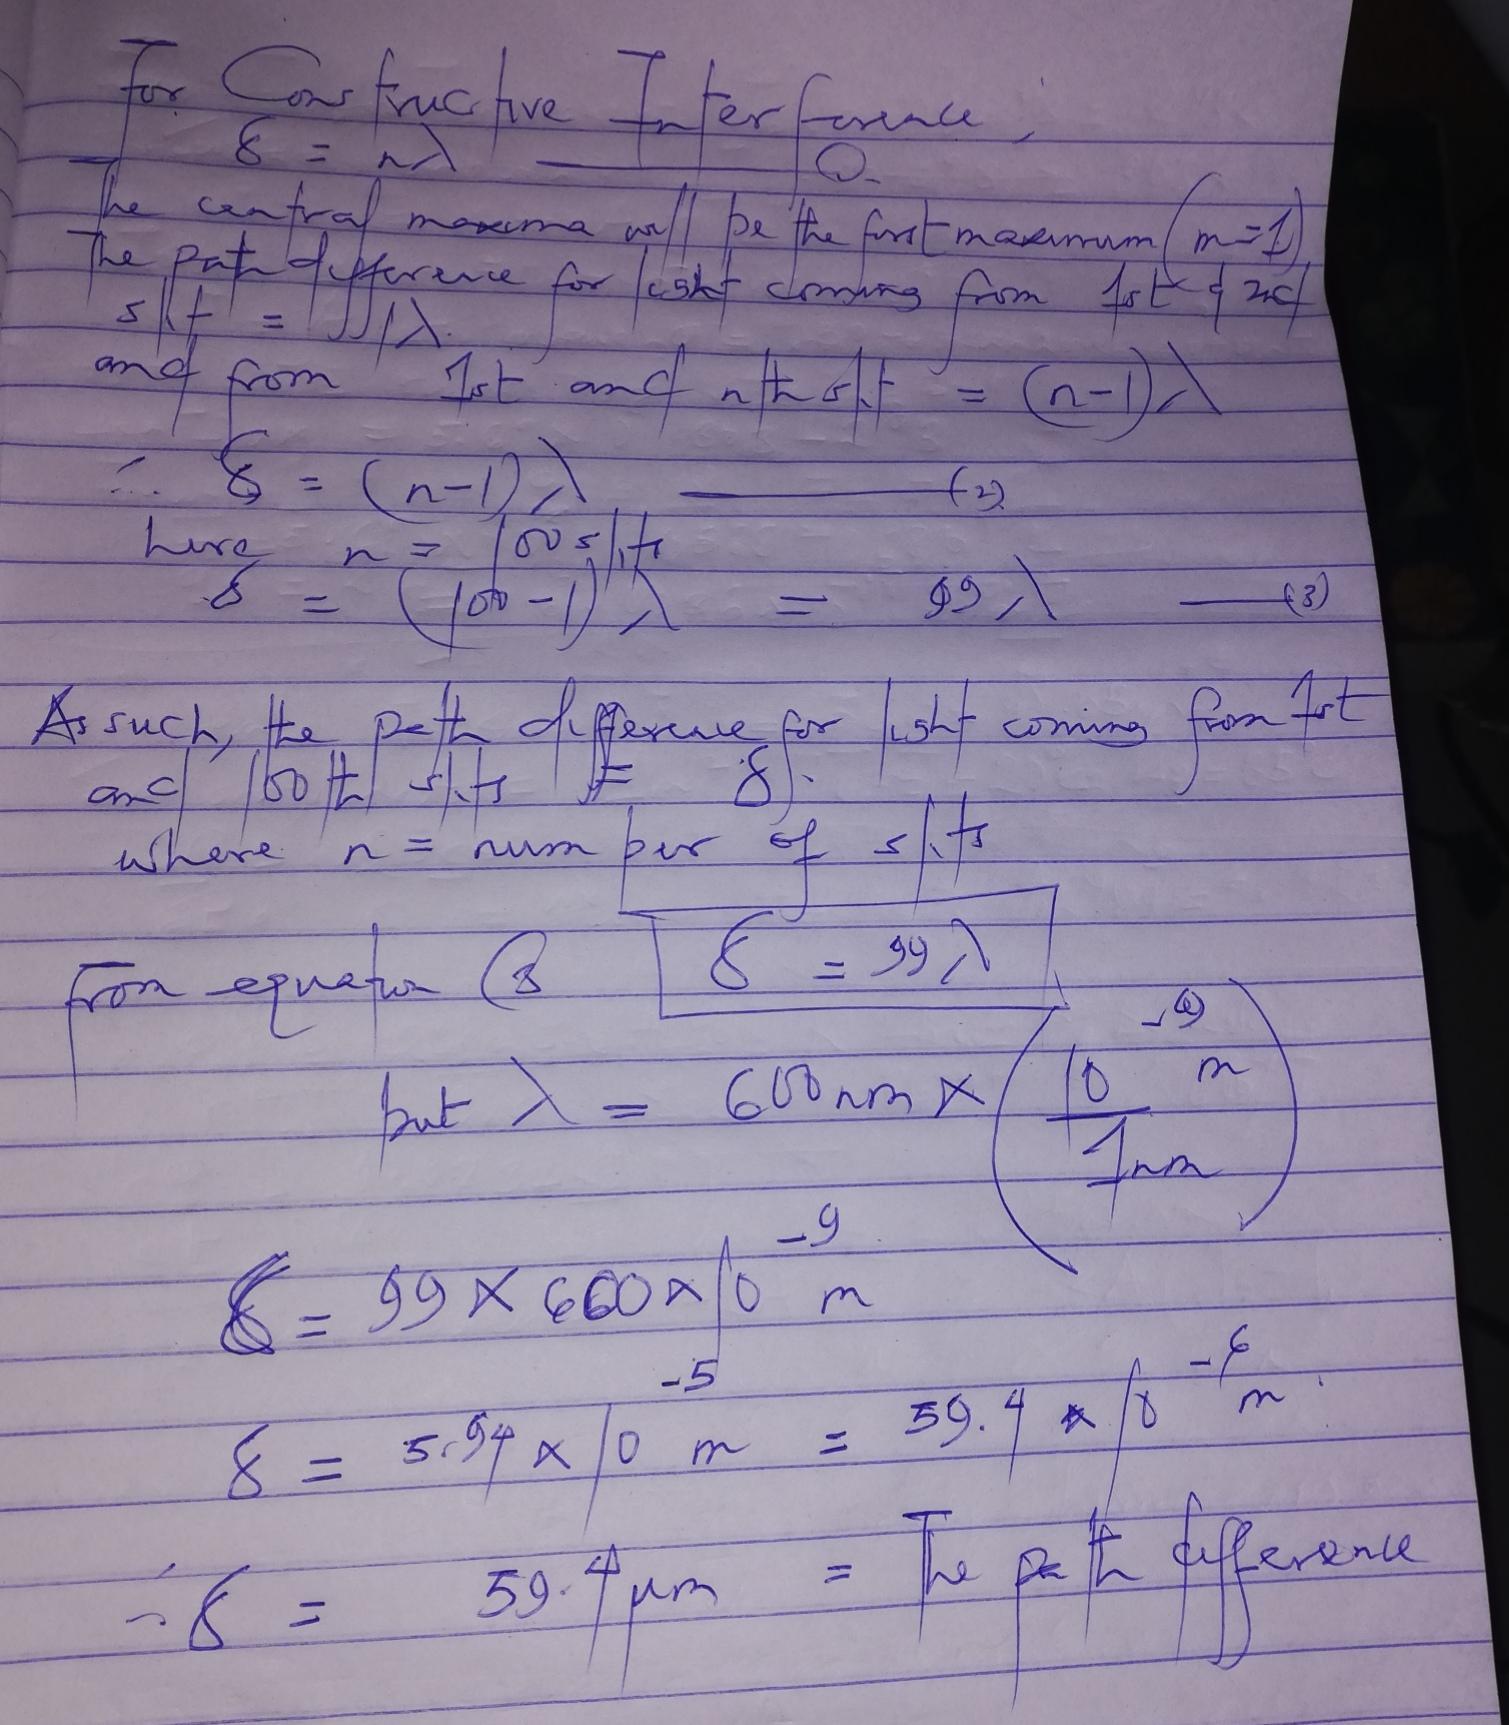 For Constructive Interference,
δ = nλ ——— ①.
The central maxima will be the first maximum (m=1)
The path difference for light coming from 1st & 2nd
slit = 1λ.
and from 1st and nth slit = (n-1)λ
∴ δ = (n-1)λ ——— (2)
here n = 100 slits
δ = (100-1)λ = 99λ ——— (3)
As such, the path difference for light coming from 1st
and 100th slits = δ.
where n = number of slits
From equation (3 δ = 99λ
but λ = 600nm × (10⁻⁹ m / 1nm)
δ = 99 × 600 × 10⁻⁹ m
δ = 5.94 × 10⁻⁵ m = 59.4 × 10⁻⁶ m.
∴ δ = 59.4 μm = The path difference